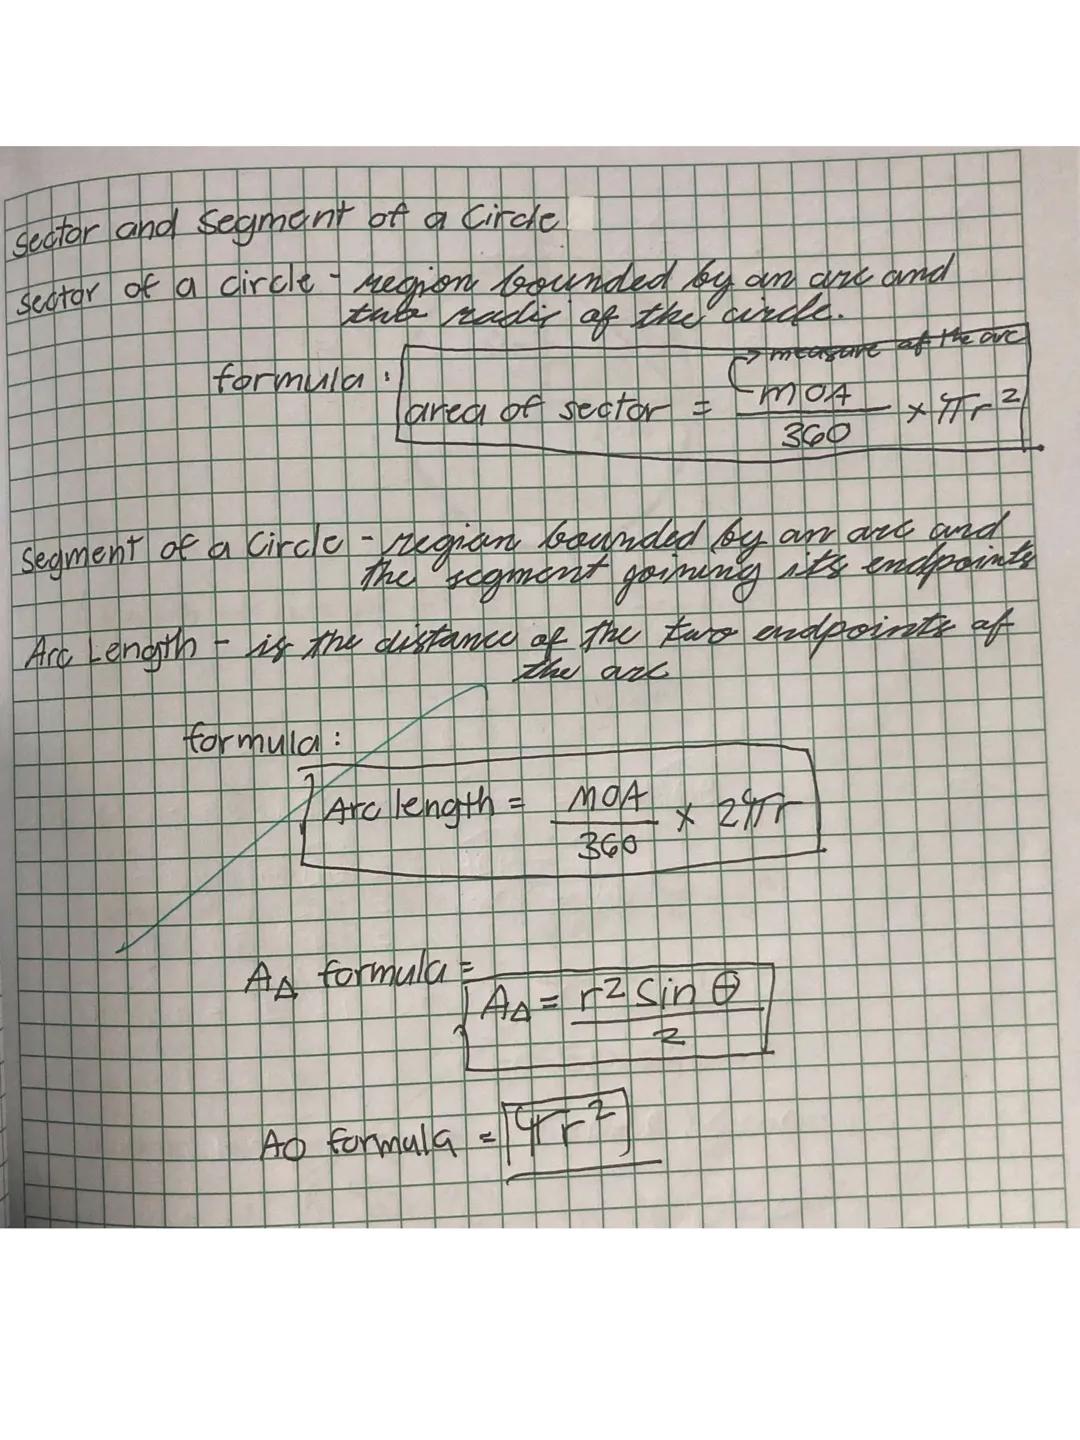 Sector and Segment of a Circle
Sector of a circle - region bounded by an arc and
two radii of the circle.
→ measure of the arc
formula :
area of sector = MOA / 360 × πr²
Segment of a Circle - region bounded by an arc and
the segment joining its endpoints
Arc Length - is the distance of the two endpoints of
the arc
formula :
Arc length = MOA / 360 × 2πr
A△ formula =
A△ = r² sin θ / 2
AO formula = πr²